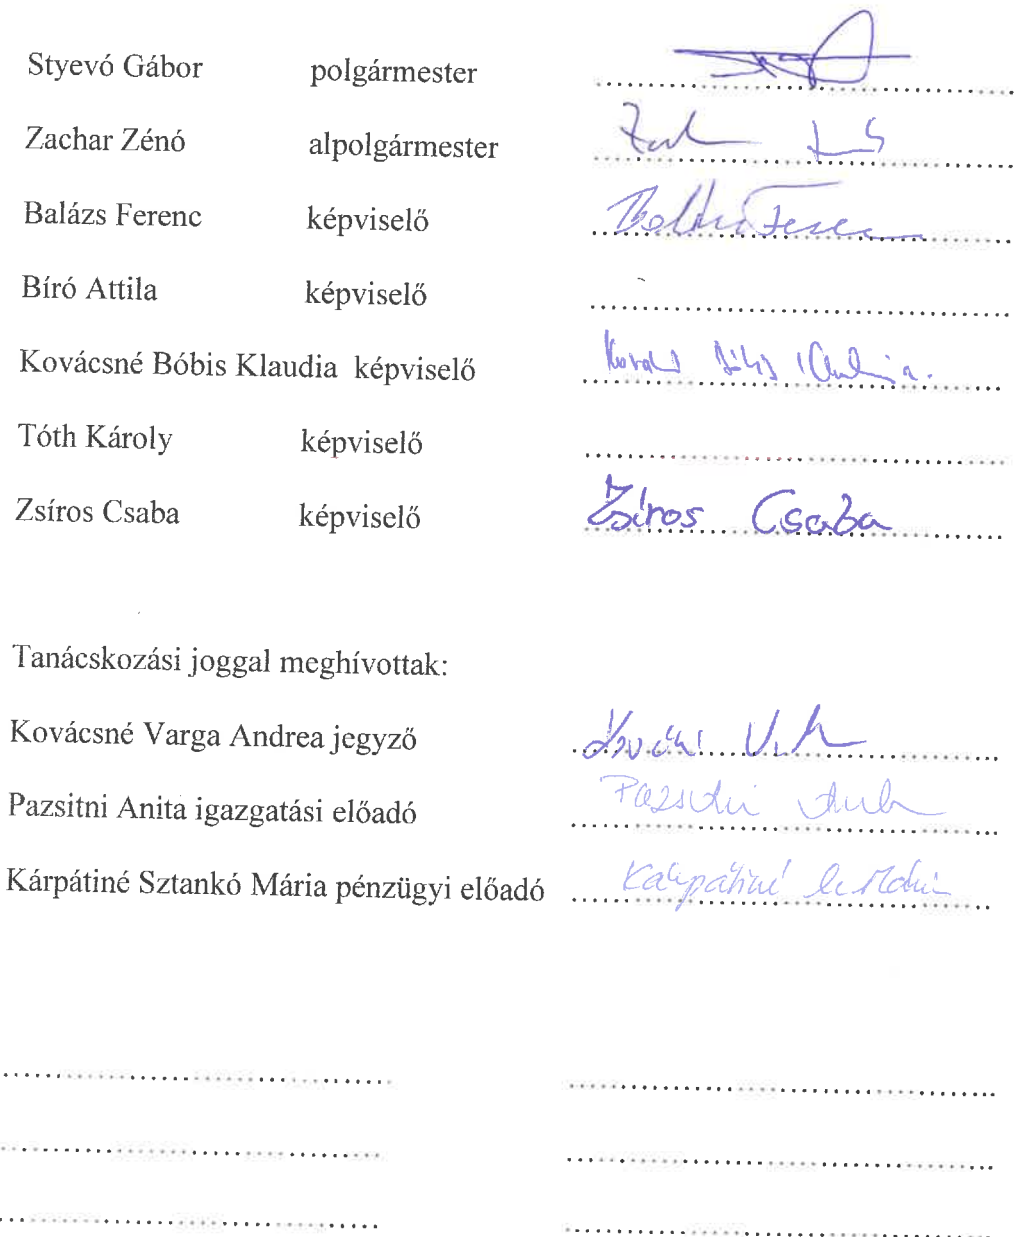 Styevó Gábor polgármester
Zachar Zénó alpolgármester
Balázs Ferenc képviselő Ferenc
Bíró Attila képviselő
Kovácsné Bóbis Klaudia képviselő
Tóth Károly képviselő
Zsíros Csaba képviselő Zsíros Csaba
Tanácskozási joggal meghívottak:
Kovácsné Varga Andrea jegyző
Pazsitni Anita igazgatási előadó Pazsitni
Kárpátiné Sztankó Mária pénzügyi előadó Kárpátiné